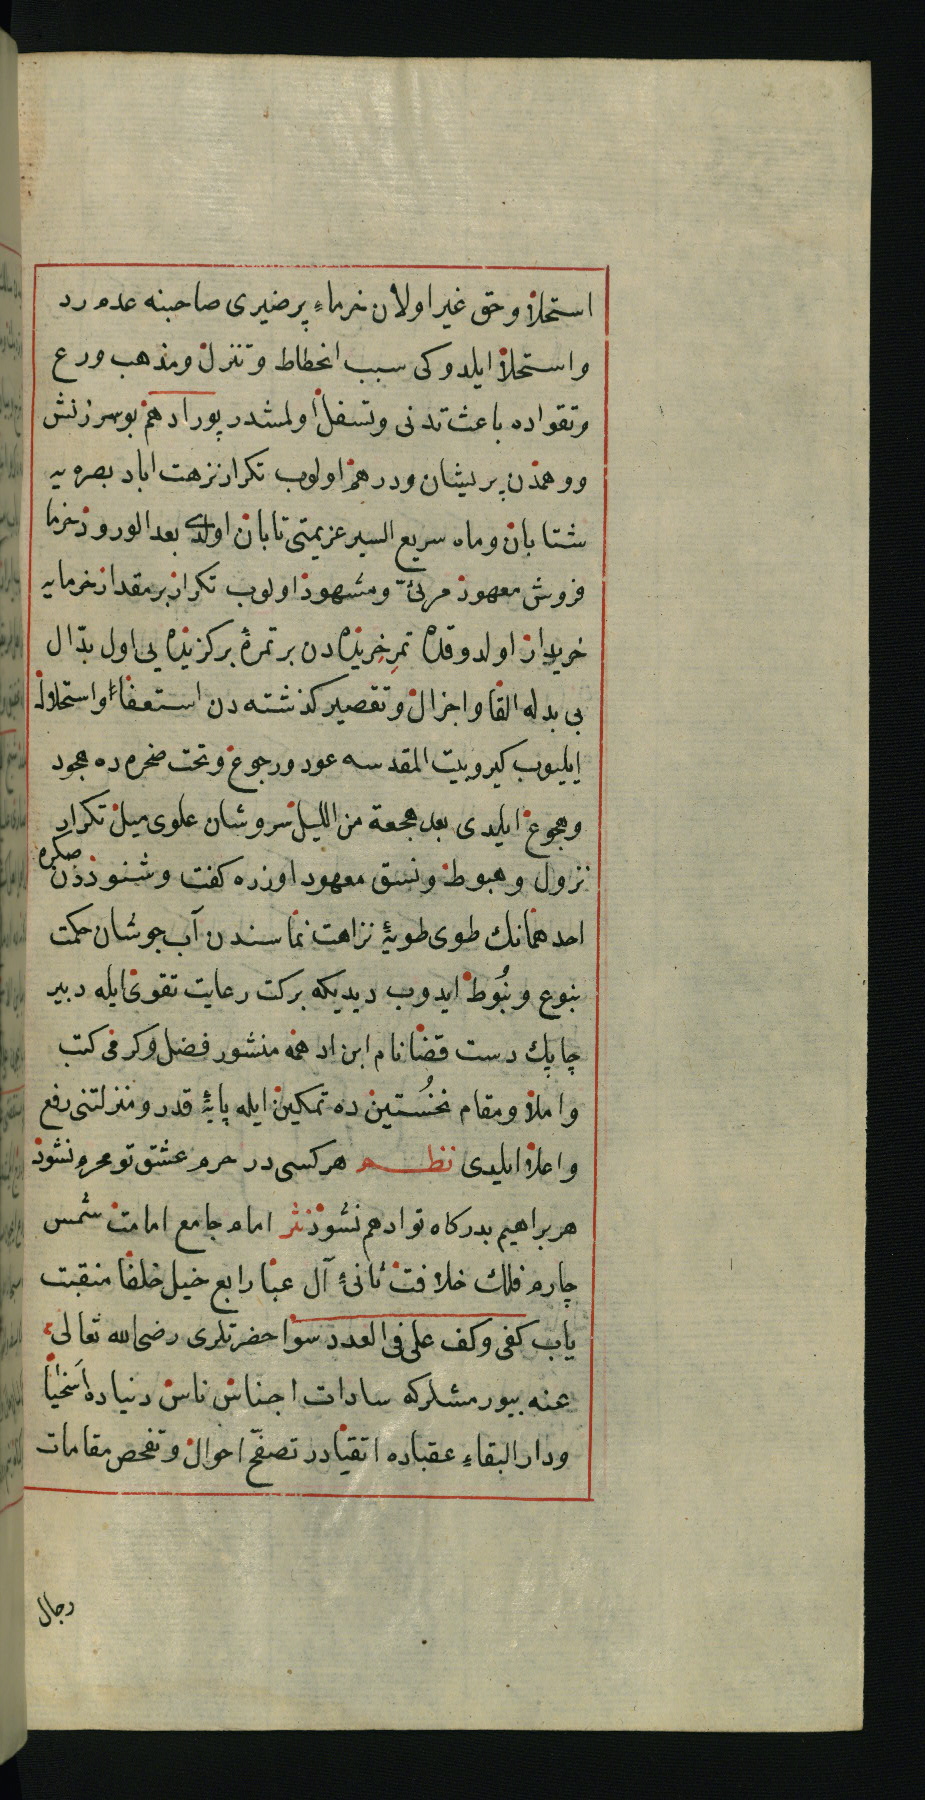 استحلال وحق غير اولان خرماء پرضيرى صاحبنه عدم رد
واستحلال ايلدوكى سبب انحطاط وتنزل ومذهب ورع
وتقواده باعث تدنى وتسفل اولمشدر پور ادهم بو سرزنش
ووهمدن پريشان ودرهم اولوب تكرار نزهت اباد بصره يه
شتابان وماه سريع السير عزيمتى تابان اولدى بعد الورود خرما
فروش معهود مرئى ومشهود اولوب تكرار بر مقدار خرمايه
خريدار اولدوقده تمر خريده دن بر تمرهٔ بركزيده يى اول بدّال
بى بدله القا واجزال وتقصير كذشته دن استعفاء واستحلاله
ايليوب كيرو بيت المقدسه عود ورجوع وتحت صخره ده هجود
وهجوع ايلدى بعد هجعة من الليل سروشان علوى ميل تكرار
نزول وهبوط ونسق معهود اوزره كفت وشنوددن صكره
احد همانك طوى طويهٔ نزاهت نماسندن آب جوشان حكمت
ينبوع ونُبوط ايدوب ديديكه بركت رعايت تقوى ايله دبير
چاپك دست قضا نام ابن ادهمه منشور فضل وكرمى كتب
واملا ومقام نخُستين ده تمكين ايله پايهٔ قدر ومنزلتنى رفع
واعلا ايلدى نظم هر كسى در حرم عشق تو محرم نشود
هر براهيم بدركاه تو ادهم نشود نثر امام جامع امامت شمس
چارم فلك خلافت ثانئ آل عبا رابع خيل خلفا منقبت
ياب كفى وكف على فى العدد سوا حضرتلرى رضى الله تعالى
عنه بيورمشلركه سادات اجناس ناس دنياده اَسخيا
ودار البقاء عقباده اتقيادر تصفّح احوال وتفحص مقامات
رجال